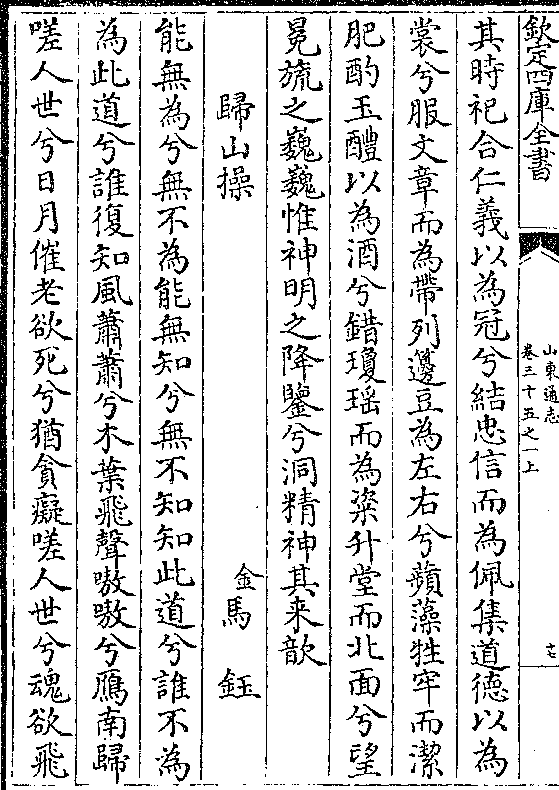 欽定四庫全書
山東通志
卷三十五之一上
其時祀合仁義以為冠兮結忠信而為佩集道德以為
裳兮服文章而為帶列籩豆為左右兮蘋藻牲牢而潔
肥酌玉醴以為酒兮錯瓊瑶而為粢升堂而北面兮望
冕旒之巍巍惟神明之降鑒兮洞精神其来歆
歸山操
金馬鈺
能無為兮無不為能無知兮無不知知此道兮誰不為
為此道兮誰復知風蕭蕭兮木葉飛聲嗷嗷兮鴈南歸
嗟人世兮日月催老欲死兮猶貪癡嗟人世兮魂欲飛